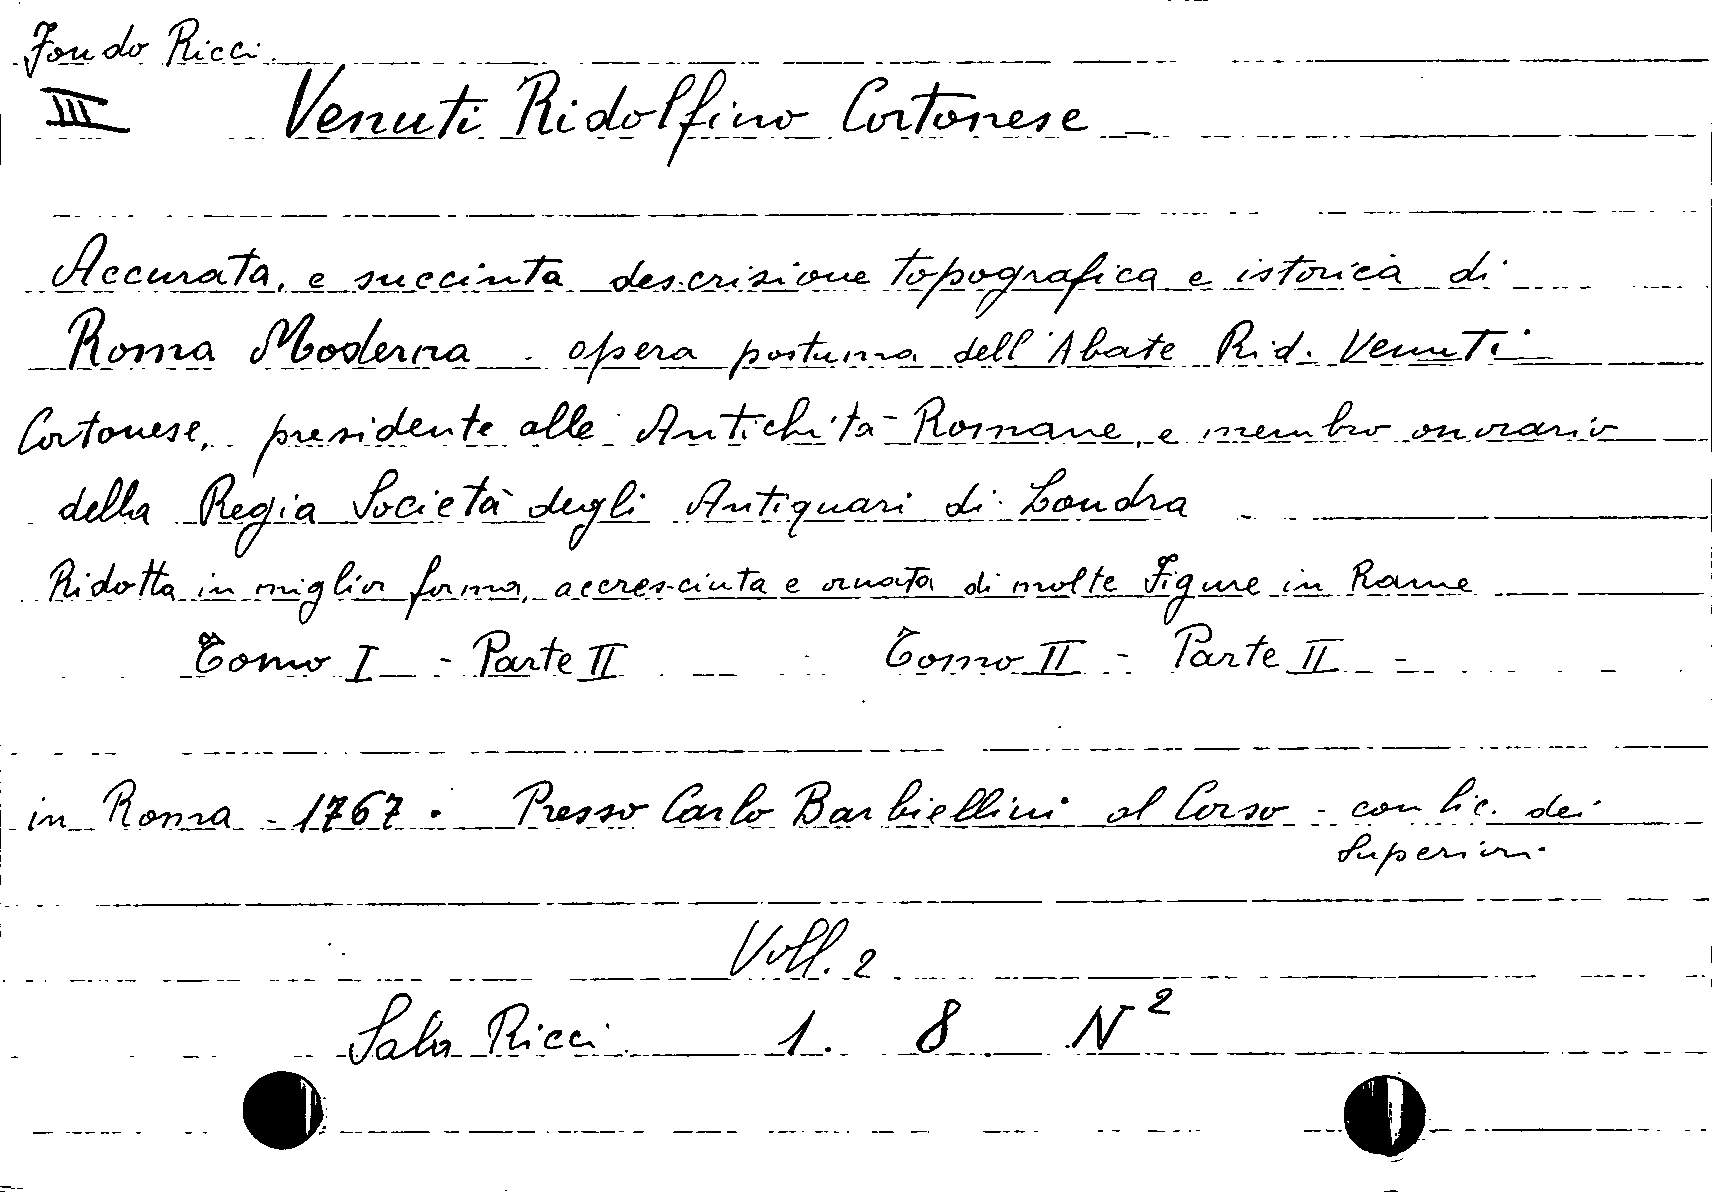 Fondo Ricci
III Venuti Ridolfino Cortonese
Accurata, e succinta descrizione topografica e istorica di
Roma Moderna - opera postuma dell'Abate Rid. Venuti
Cortonese, presidente alle Antichità Romane, e membro onorario
della Regia Società degli Antiquari di Londra
Ridotta in miglior forma, accresciuta e ornata di molte Figure in Rame
Tomo I - Parte II Tomo II - Parte II -
in Roma - 1767 . Presso Carlo Barbiellini al Corso - con lic. dei
Superiori
Voll. 2
Sala Ricci 1. 8 N 2